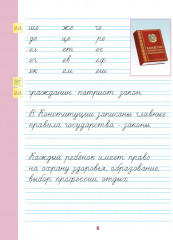 ше же че
до це ре
ел ет ес
ег ев еф
ек ем еш
гражданин патриот закон
В Конституции записаны главные
правила государства - законы.
Каждый ребёнок имеет право
на охрану здоровья, образование,
выбор профессии, отдых.
6